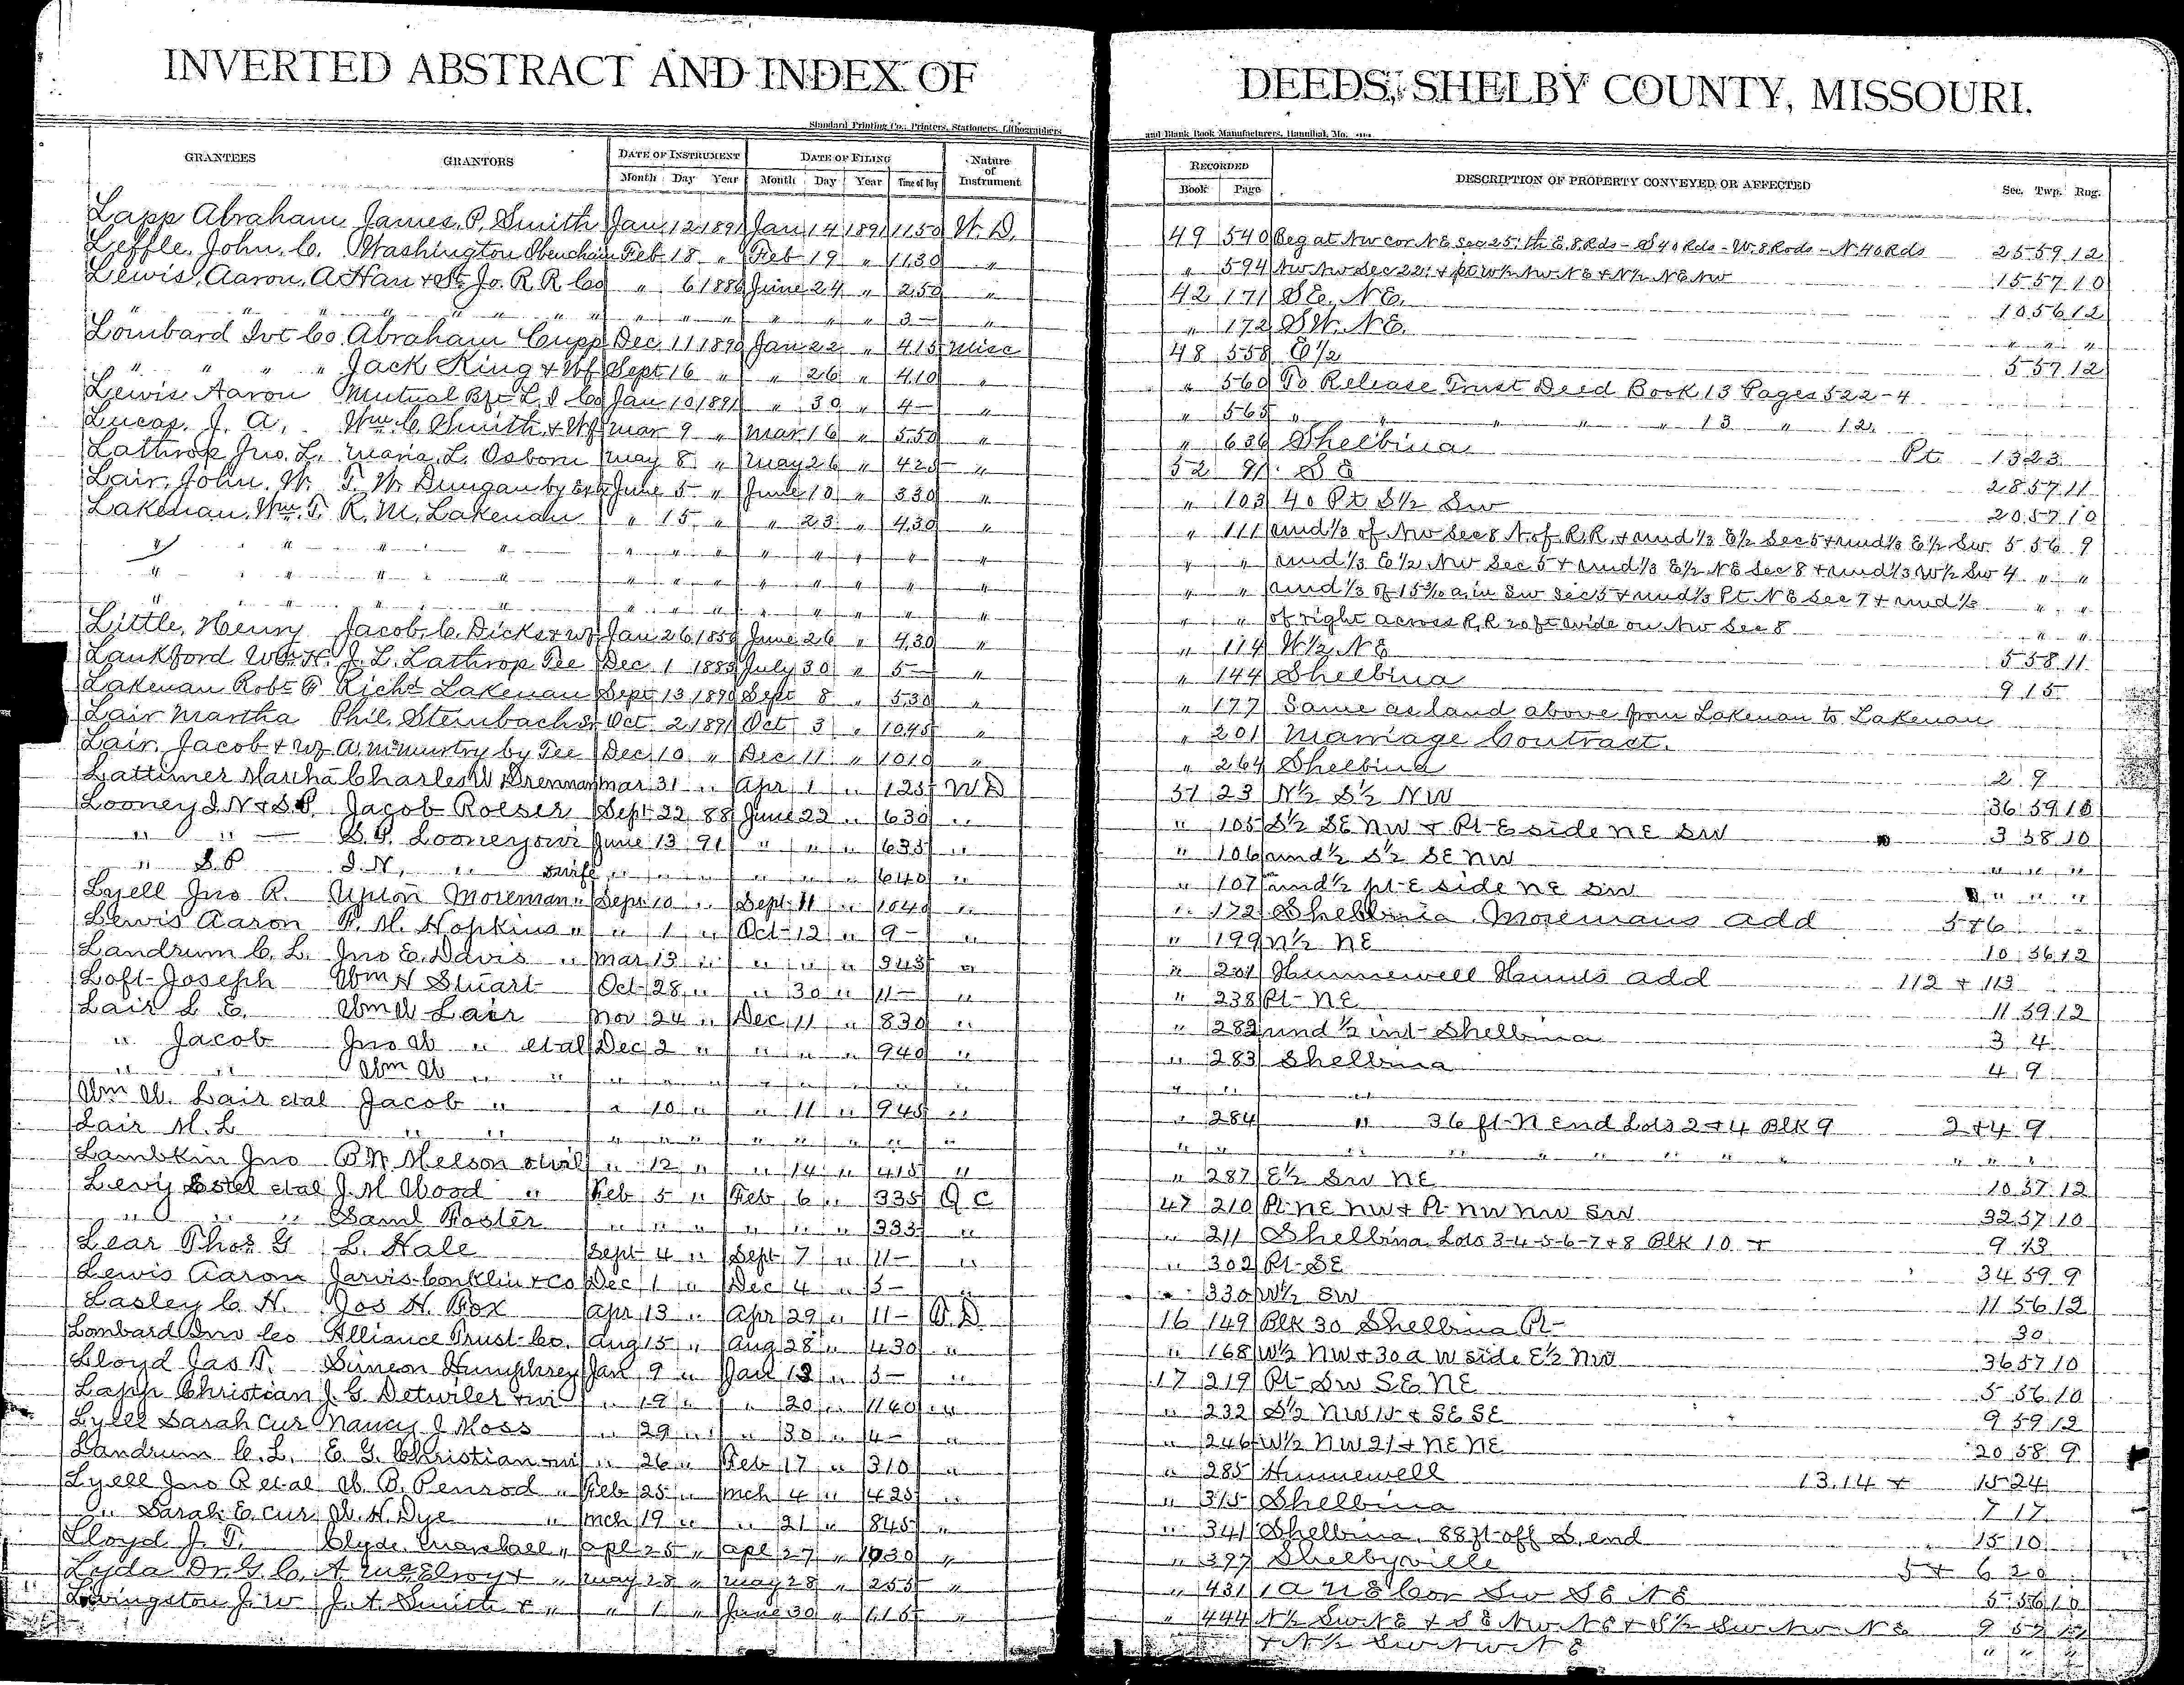 INVERTED ABSTRACT AND INDEX OF DEEDS, SHELBY COUNTY, MISSOURI.
Standard Printing Co., Printers, Stationers, Lithographers and Blank Book Manufacturers, Hannibal, Mo.
GRANTEES GRANTORS DATE OF INSTRUMENT DATE OF FILING Nature of Instrument RECORDED DESCRIPTION OF PROPERTY CONVEYED OR AFFECTED Sec. Twp. Rng.
Month Day Year Month Day Year Time of Day Book Page
Lapp Abraham James P. Smith Jan 12 1891 Jan 14 1891 1150 W. D. 49 540 Beg at NW cor NE Sec 25; th E. 8 Rds - S 40 Rds - W. 8 Rods - N. 40 Rds 25 59 12
Leffle, John, C. Washington Obenchain Feb 18 " Feb 19 " 1130 " " 594 NW NW Sec 22 & pt W½ NW NE & N½ NE NW 15 57 10
Lewis, Aaron, A Han & St Jo. R R Co " 6 1886 June 24 " 250 " 42 171 SE. NE. 10 56 12
" " " " " " " " " " " 3- " " 172 SW. NE. " " "
Lombard Ivt Co Abraham Cupp Dec 11 1890 Jan 22 " 415 Misc 48 558 E½ 5 57 12
" " " Jack King & Wf Sept 16 " " 26 " 410 " " 560 To Release Trust Deed Book 13 Pages 522-4
Lewis Aaron Mutual L. I Co Jan 10 1891 " 30 " 4- " " 565 " " " " 13 " 12.
Lucas. J. A. Wm. C. Smith & Wf Mar 9 " Mar 16 " 550 " " 636 Shelbina Pt 13 23
Lathrop Jno. L. Maria. L. Osborn May 8 " May 26 " 425 " 52 91 SE 28 57 11
Lair, John. W. T. W. Dungan by June 5 " June 10 " 330 " " 103 40 Pt S½ SW 20 57 10
Lakenan, Wm. T. R. M. Lakenan " 15 " " 23 " 430 " " 111 und ⅓ of NW Sec 8 N. of R.R. & und ⅓ E½ Sec 5 & und ⅓ E½ SW. 5 56 9
" " " " " " " " " " " " " " und ⅓ E½ NW Sec 5 & und ⅓ E½ NE Sec 8 & und ⅓ W½ SW 4 " "
" " " " " " " " " " " " " " und ⅓ of 15 3/10 a, in SW Sec 5 & und ⅓ Pt NE Sec 7 & und ⅓ " " "
" " " " " " " " " " " " of right across R.R 20 ft wide on NW Sec 8 " " "
Little, Henry Jacob. C. Dicks & wf Jan 26 1856 June 26 " 430 " " 114 W½ NE 5 58 11
Lankford Wm. H. J. L. Lathrop Tee Dec 1 1883 July 30 " 5- " " 144 Shelbina 9 15
Lakenan Robt Richd Lakenan Sept 13 1890 Sept 8 " 530 " " 177 Same as land above from Lakenan to Lakenan
Lair Martha Phil. Steinbach Sr Oct 2 1891 Oct 3 " 1045 " " 201 Marriage Contract.
Lair, Jacob & wf A. McMurtry by Tee Dec 10 " Dec 11 " 1010 " " 264 Shelbina 2 9
Lattimer Martha Charles W Drennan Mar 31 " Apr 1 " 125 WD 51 23 N½ S½ NW 36 59 10
Looney I. N & S. P. Jacob Roeser Sept 22 88 June 22 " 630 " " 105 S½ SE NW & Pt E side NE SW 3 58 10
" " S. P. Looney & wi June 13 91 " " " 635 " " 106 und ½ S½ SE NW " " "
" S. P I. N. " & wife " " " " " " 640 " " 107 und ½ pt E side NE SW " " "
Lyell Jno R. Upton Moreman " Sept 10 " Sept 11 " 1040 " " 172 Shelbina Moremans add 5 & 6
Lewis Aaron F. M. Hopkins " " 1 " Oct 12 " 9- " " 199 N½ NE 10 56 12
Landrum C. L. Jno E. Davis " Mar 13 " " " " 345 " " 201 Hunnewell Hunds add 112 & 113
Loft Joseph Wm H Stuart Oct 28 " " 30 " 11- " " 238 Pt NE 11 59 12
Lair L E. Wm W Lair Nov 24 " Dec 11 " 830 " " 282 und ½ int Shelbina 3 4
" Jacob Jno W " et al Dec 2 " " " " 940 " " 283 Shelbina 4 9
" " Wm W " " " " " " " " " " " " "
Wm W. Lair et al Jacob " " 10 " " 11 " 945 " " 284 " 36 ft N end Lots 2 & 4 Blk 9 2 & 4 9
Lair M. L " " " " " " " " " " " " " " " " " " " " " "
Lambkin Jno B N Melson et al " 12 " " 14 " 415 " " 287 E½ SW NE 10 57 12
Levy Estel et al J. M Wood " Feb 5 " Feb 6 " 335 Q C 47 210 Pt NE NW & Pt NW NW SW 32 57 10
" " " Saml Foster " " " " " " 335 " " 211 Shelbina Lots 3-4-5-6-7 & 8 Blk 10 & 9 13
Lear Thos G L. Hale Sept 4 " Sept 7 " 11- " " 302 Pt SE 34 59 9
Lewis Aaron Jarvis-Conklin & Co Dec 1 " Dec 4 " 5- " " 330 W½ SW 11 56 12
Lasley C. H. Jos H. Fox Apr 13 " Apr 29 " 11- 16 149 Blk 30 Shelbina Pt 30
Lombard Inv Co Alliance Trust Co. Aug 15 " Aug 28 " 430 " " 168 W½ NW & 30 a W side E½ NW 36 57 10
Lloyd Jas T. Simeon Humphrey Jan 9 " Jan 12 " 5- " 17 219 Pt SW SE NE 5 56 10
Lapp Christian J. G Detwiler & wi " 19 " " 20 " 1140 " " 232 S½ NW 15 & SE SE 9 59 12
Lyell Sarah Cur Nancy J Moss " 29 " " 30 " 4- " " 246 W½ NW 21 & NE NE 20 58 9
Landrum C. L. E. G. Christian & wi " 26 " Feb 17 " 310 " " 285 Hunnewell 13, 14 & 15 24
Lyell Jno R et al W. B. Penrod " Feb 25 " Mch 4 " 425 " " 315 Shelbina 7 17
" Sarah E. Cur. W. H. Dye " Mch 19 " " 21 " 845 " " 341 Shelbina. 88 ft off S. end 15 10
Lloyd J. T. Clyde Marshall " Apl 25 " Apl 27 " 1030 " " 397 Shelbyville 5 & 6 20
Lyda Dr. G. C. A McElroy & " May 28 " May 28 " 255 " " 431 1 a NE Cor SW SE NE 5 56 10
Livingston J. W J. A. Smith & " " 1 " June 30 " 115 " " 444 N½ SW NE & SE NW NE & S½ SW NW NE 9 57
& N½ SW NW NE " " "